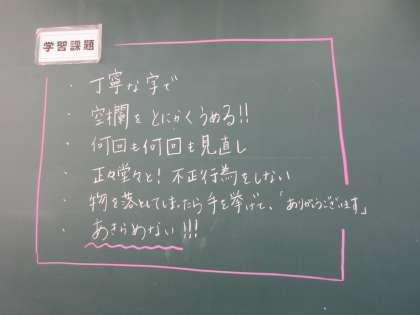 学習課題
・丁寧な字で
・空欄をとにかくうめる!!
・何回も何回も見直し
・正々堂々と!不正行為をしない
・物を落としてしまったら手を挙げて、「ありがとうございます」
・あきらめない!!!